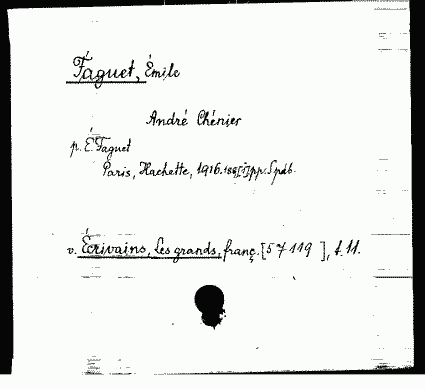 Faguet, Émile
André Chénier
p. É. Faguet
Paris, Hachette, 1916. 186[1]pp. 5 pdb.
v. Écrivains, Les grands, franç. [57119], t. 11.